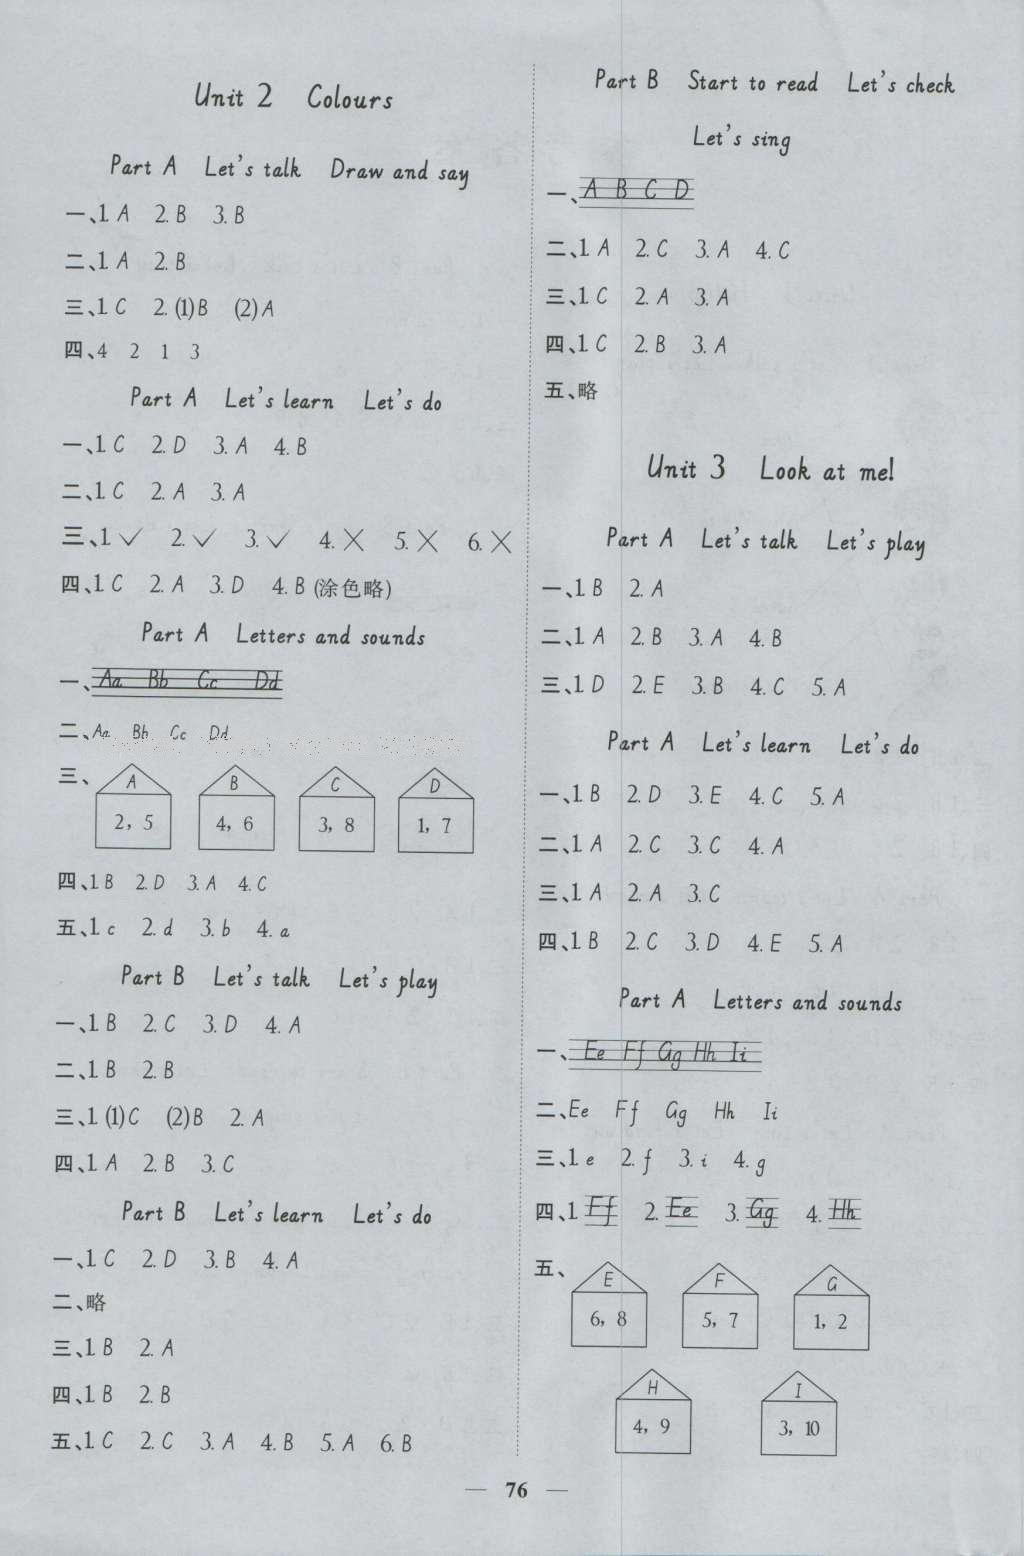 Unit 2 Colours
Part A Let's talk Draw and say
一、1 A 2. B 3. B
二、1 A 2. B
三、1 C 2. (1)B (2)A
四、4 2 1 3
Part A Let's learn Let's do
一、1 C 2. D 3. A 4. B
二、1 C 2. A 3. A
三、1 ✓ 2. ✓ 3. ✓ 4. ✕ 5. ✕ 6. ✕
四、1 C 2. A 3. D 4. B (涂色略)
Part A Letters and sounds
一、Aa Bb Cc Dd
二、Aa Bb Cc Dd
三、
A B C D
2, 5 4, 6 3, 8 1, 7
四、1 B 2. D 3. A 4. C
五、1 c 2. d 3. b 4. a
Part B Let's talk Let's play
一、1 B 2. C 3. D 4. A
二、1 B 2. B
三、1 (1)C (2)B 2. A
四、1 A 2. B 3. C
Part B Let's learn Let's do
一、1 C 2. D 3. B 4. A
二、略
三、1 B 2. A
四、1 B 2. B
五、1 C 2. C 3. A 4. B 5. A 6. B
Part B Start to read Let's check
Let's sing
一、A B C D
二、1 A 2. C 3. A 4. C
三、1 C 2. A 3. A
四、1 C 2. B 3. A
五、略
Unit 3 Look at me!
Part A Let's talk Let's play
一、1 B 2. A
二、1 A 2. B 3. A 4. B
三、1 D 2. E 3. B 4. C 5. A
Part A Let's learn Let's do
一、1 B 2. D 3. E 4. C 5. A
二、1 A 2. C 3. C 4. A
三、1 A 2. A 3. C
四、1 B 2. C 3. D 4. E 5. A
Part A Letters and sounds
一、Ee Ff Gg Hh Ii
二、Ee Ff Gg Hh Ii
三、1 e 2. f 3. i 4. g
四、1 Ff 2. Ee 3. Gg 4. Hh
五、
E F G
6, 8 5, 7 1, 2
H I
4, 9 3, 10
— 76 —